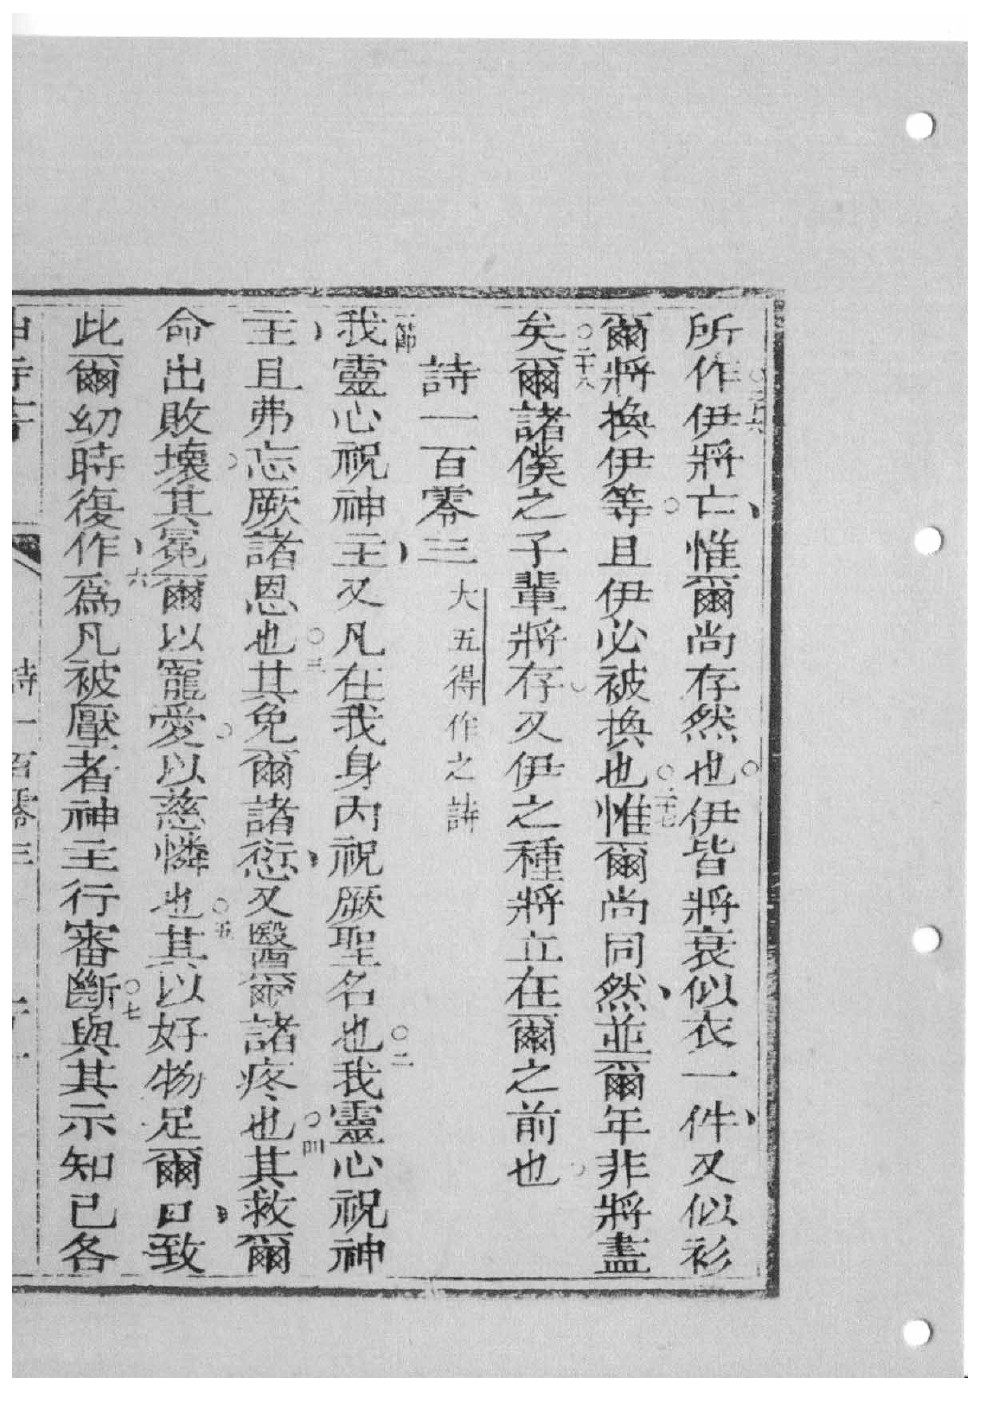 所作伊將亡惟爾尚存然也伊皆將衰似衣一件又似衫
二十六
爾將換伊等且伊必被換也惟爾尚同然並爾年非將盡
二十七
矣爾諸僕之子輩將存又伊之種將立在爾之前也
二十八
詩一百零三
大五得作之詩
一節
我靈心祝神主又凡在我身內祝厥聖名也我靈心祝神
二
主且弗忘厥諸恩也其免爾諸愆又醫爾諸疼也其救爾
三
四
命出敗壞其冕爾以寵愛以慈憐也其以好物足爾口致
五
此爾幼時復作爲凡被壓者神主行審斷與其示知已各
六
七
詩一百零三